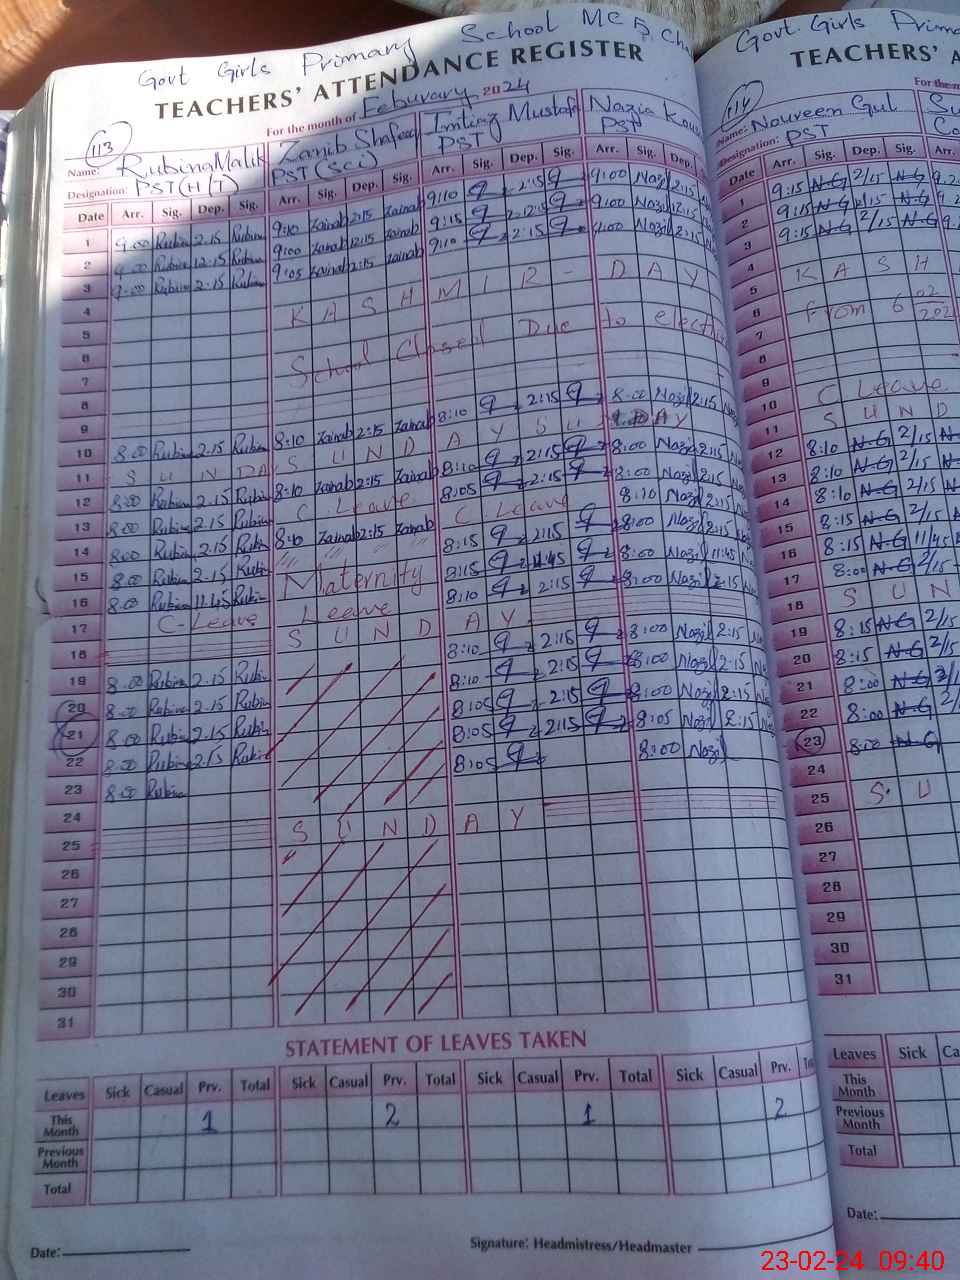 Govt Girls Primary School MC 5, Cha
TEACHERS' ATTENDANCE REGISTER
For the month of Feburary 2024
113
Name: Rubina Malik Zanib Shafeeq Imtiaz Mustafa Nazia Kau
Designation: PST (H T) PST (SCi) PST PST
Date Arr. Sig. Dep. Sig. Arr. Sig. Dep. Sig. Arr. Sig. Dep. Sig. Arr. Sig. Dep.
1 9:00 Rubina 2:15 Rubina 9:10 Zainab 2:15 Zainab 9:10 2:15 9:00 Nazi 2:15
2 9:00 Rubina 12:15 Rubina 9:00 Zainab 12:15 Zainab 9:15 12:15 9:00 Nazi 12:15
3 9:00 Rubina 2:15 Rubina 9:05 Zainab 2:15 Zainab 9:10 2:15 9:00 Nazi 2:15
4
5 KASHMIR - DAY
6
7 School Closed Due to election
8
9
10 8:00 Rubina 2:15 Rubina 8:10 Zainab 2:15 Zainab 8:10 2:15 8:00 Nazi 2:15
11 SUNDAY SUNDAY SUNDAY
12 8:00 Rubina 2:15 Rubina 8:10 Zainab 2:15 Zainab 8:10 2:15 8:00 Nazi 2:15
13 8:00 Rubina 2:15 Rubina C Leave 8:05 2:15 8:00 Nazi 2:15
14 8:00 Rubina 2:15 Rubina 8:10 Zainab 2:15 Zainab C Leave 8:10 Nazi 2:15
15 8:00 Rubina 2:15 Rubina Maternity 8:15 2:15 8:00 Nazi 2:15
16 8:00 Rubina 11:45 Rubina Leave 8:15 11:45 8:00 Nazi 11:45
17 C-Leave 8:10 2:15 8:00 Nazi 2:15
18 SUNDAY
19 8:00 Rubina 2:15 Rubina 8:10 2:15 8:00 Nazi 2:15
20 8:00 Rubina 2:15 Rubina 8:10 2:15 8:00 Nazi 2:15
21 8:00 Rubina 2:15 Rubina 8:05 2:15 8:00 Nazi 2:15
22 8:00 Rubina 2:15 Rubina 8:05 2:15 8:05 Nazi 2:15
23 8:00 Rubina 8:05 8:00 Nazi
24
25 SUNDAY
26
27
28
29
30
31
STATEMENT OF LEAVES TAKEN
Leaves Sick Casual Prv. Total Sick Casual Prv. Total Sick Casual Prv. Total Sick Casual Prv.
This Month 1 2 1 2
Previous Month
Total
Date: Signature: Headmistress/Headmaster
Govt. Girls Prima
TEACHERS' A
For the m
114
Name: Nouveen Gul
Designation: PST
Date Arr. Sig. Dep. Sig. Arr.
1 9:15 N-G 2/15 N-G
2 9:15 N-G 2/15 N-G
3 9:15 N-G 2/15 N-G
4
5 KASH
6 From 6 02 202
7
8
9
10 C Leave
11 SUND
12 8:10 N-G 2/15 N
13 8:10 N-G 2/15 N
14 8:10 N-G 2/15 N
15 8:15 N-G 2/15 N
16 8:15 N-G 11/45 N
17 8:00 N-G 2/15
18 SUN
19 8:15 N-G 2/15
20 8:15 N-G 2/15
21 8:00 N-G 2/1
22 8:00 N-G 2/
23 8:00 N-G
24
25 S U
26
27
28
29
30
31
Leaves Sick Ca
This Month
Previous Month
Total
Date:
23-02-24 09:40